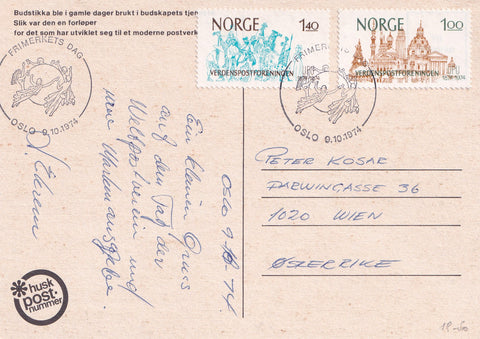 Budstikka ble i gamle dager brukt i budskapets tjen
Slik var den en forløper
for det som har utviklet seg til et moderne postverk
NORGE 1.40
VERDENSPOSTFORENINGEN
1874-1974
NORGE 1.00
VERDENSPOSTFORENINGEN
1874-1974
FRIMERKETS DAG
OSLO 9.10.1974
FRIMERKETS DAG
OSLO 9.10.1974
Oslo 9.10.74.
Ein kleinen Gruss
auf dem Tag der
Weltpostverein und
neue Markenausgabe.
PETER KOSAR
DARWINGASSE 36
1020 WIEN
ØSTERRIKE
husk
post-
nummer